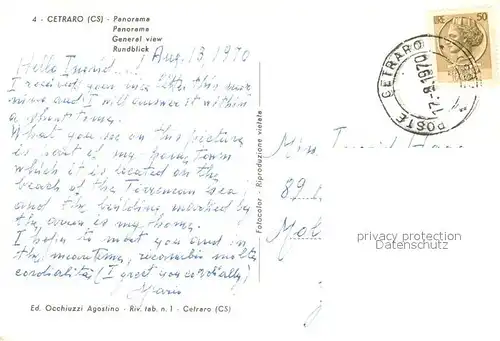 4 - CETRARO (CS) - Panorama
Panorama
General view
Rundblick
Aug. 13, 1970
Hello Ingrid...!
I received your nice letter this mor-
ning and I will answer it within
a short time.
What you see on this picture
is part of my home town
which it is located on the
beach of the Tirrenean sea;
and the building marked by
the arrow is my home.
I hope to meet you and in
the meantime, ricambio molte
cordialità (I greet you cordially)
Mario
Ed. Occhiuzzi Agostino - Riv. tab. n. 1 - Cetraro (CS)
Fotocolor - Riproduzione vietata
LIRE 50
POSTE CETRARO
17-8.1970
Miss Ingrid
89
privacy protection
Datenschutz